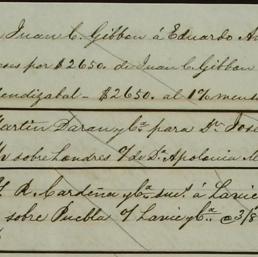 Juan C. Gibbon á Eduardo
por $2650. de Juan C. Gibbon
Mendizabal - $2650. al 1% mens
Martin Daran y Ca. para Dn. José
sobre Londres o/ de Da. Apolonia
R. Cardeña y Ca. suc. á Lavie
sobre Puebla o/ Lavie y Ca. @ 3/8